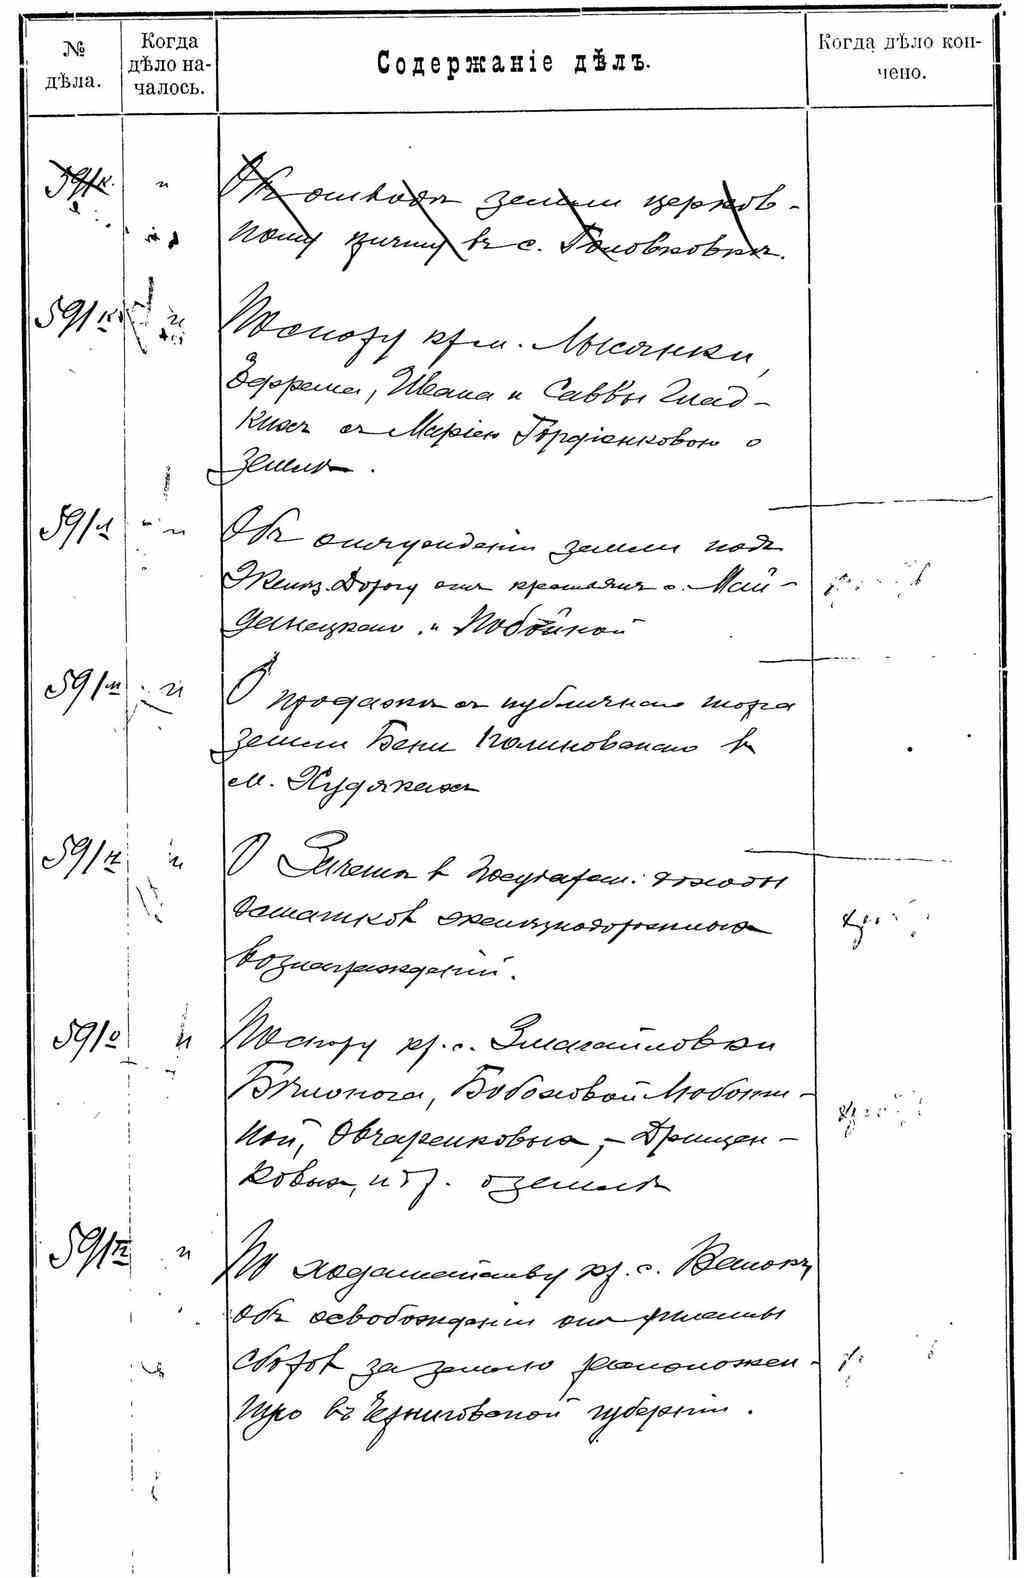 № дѣла.
Когда дѣло на-
чалось.
Содержаніе дѣлъ.
Когда дѣло кон-
чено.
591/к. " Объ отводѣ земли церков-
ному причту въ с. Головковкѣ.
591/к " По спору кр. м. Лысянки,
Ефрема, Ивана и Саввы Глад-
кихъ съ Маріею Гордіенковою о
землѣ.
591/л " Объ отчужденіи земли подъ
Желѣз. Дорогу отъ крестьянъ с. Май-
данецкаго и Побойной
591/м " О продажѣ съ публичнаго торга
земли Бени Калиновскаго въ
м. Худякахъ
591/н " О зачетѣ въ Государств. доходы
остатковъ желѣзнодорожнаго
вознагражденія.
591/о " По спору кр. с. Змагайловки
Бѣлонога, Бобоховой Любохи-
ной, Овчаренковыхъ, Дрищен-
ковыхъ, и др. о землѣ
591/п " По ходатайству кр. с.
объ освобожденіи отъ уплаты
сборовъ за землю расположен-
ную въ Черниговской губерніи.